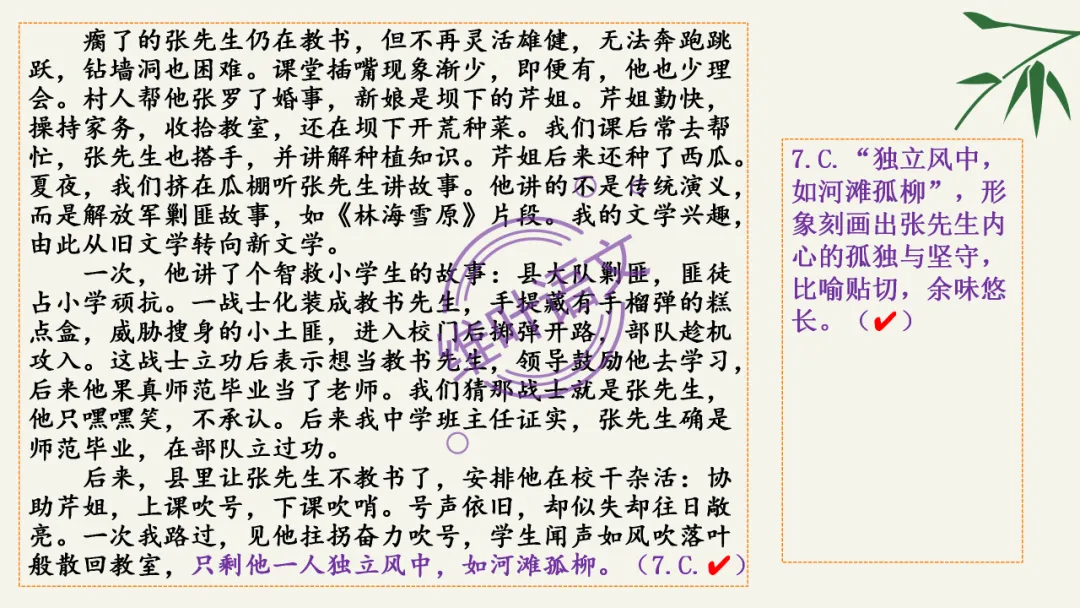 瘸了的张先生仍在教书，但不再灵活雄健，无法奔跑跳
跃，钻墙洞也困难。课堂插嘴现象渐少，即便有，他也少理
会。村人帮他张罗了婚事，新娘是坝下的芹姐。芹姐勤快，
操持家务，收拾教室，还在坝下开荒种菜。我们课后常去帮
忙，张先生也搭手，并讲解种植知识。芹姐后来还种了西瓜。
夏夜，我们挤在瓜棚听张先生讲故事。他讲的不是传统演义，
而是解放军剿匪故事，如《林海雪原》片段。我的文学兴趣，
由此从旧文学转向新文学。
一次，他讲了个智救小学生的故事：县大队剿匪，匪徒
占小学顽抗。一战士化装成教书先生，手提藏有手榴弹的糕
点盒，威胁搜身的小土匪，进入校门后掷弹开路，部队趁机
攻入。这战士立功后表示想当教书先生，领导鼓励他去学习，
后来他果真师范毕业当了老师。我们猜那战士就是张先生，
他只嘿嘿笑，不承认。后来我中学班主任证实，张先生确是
师范毕业，在部队立过功。
后来，县里让张先生不教书了，安排他在校干杂活：协
助芹姐，上课吹号，下课吹哨。号声依旧，却似失却往日敞
亮。一次我路过，见他拄拐奋力吹号，学生闻声如风吹落叶
般散回教室，只剩他一人独立风中，如河滩孤柳。（7.C.✔）
7.C.“独立风中，
如河滩孤柳”，形
象刻画出张先生内
心的孤独与坚守，
比喻贴切，余味悠
长。（✔）
维叶语文